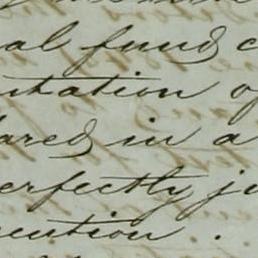 al fund c
ntation o
ared in a
erfectly ju
ecution.